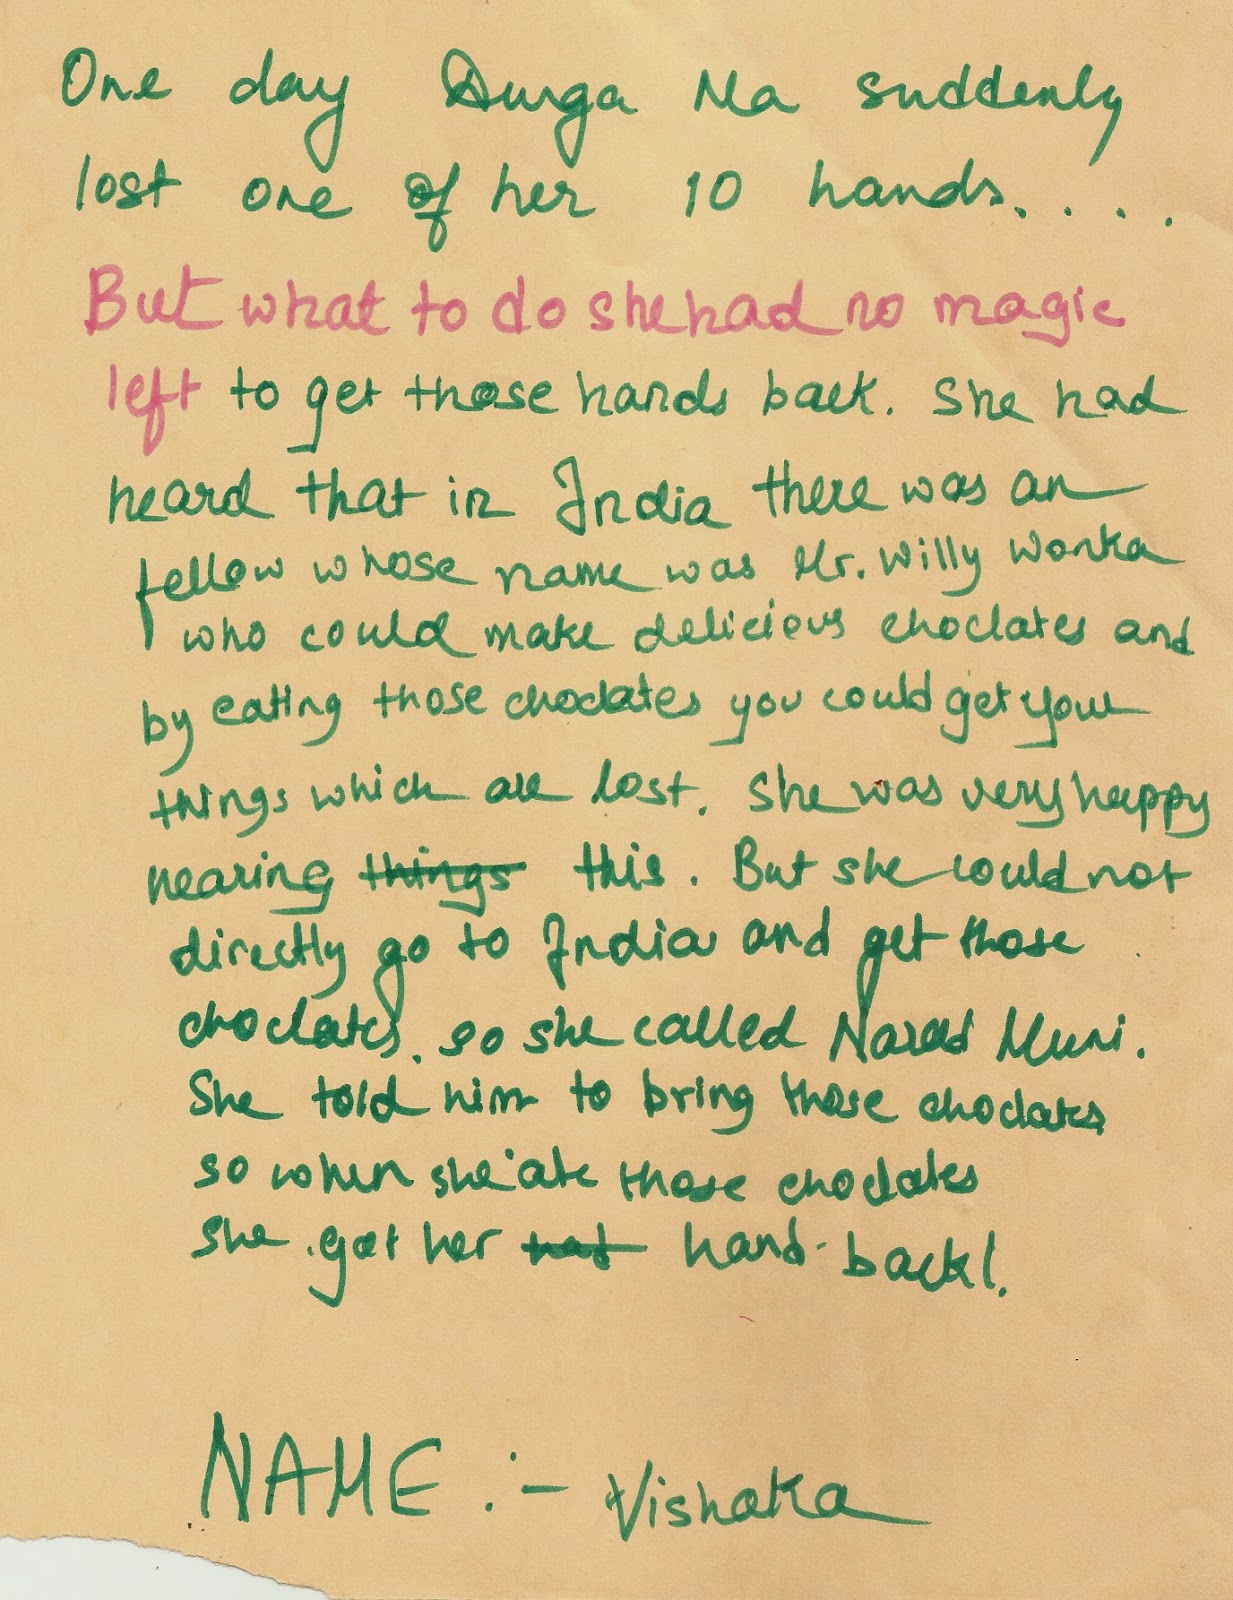 One day Durga Ma suddenly
lost one of her 10 hands. . . .
But what to do she had no magic
left to get those hands back. She had
heard that in India there was an
fellow whose name was Mr. Willy Wonka
who could make delicious choclates and
by eating those choclates you could get your
things which are lost. She was very happy
hearing things this. But she could not
directly go to India and get those
choclates. so she called Narad Muni.
She told him to bring those choclates
so when she ate those choclates
She got her hand back!.
NAME :- Vishaka